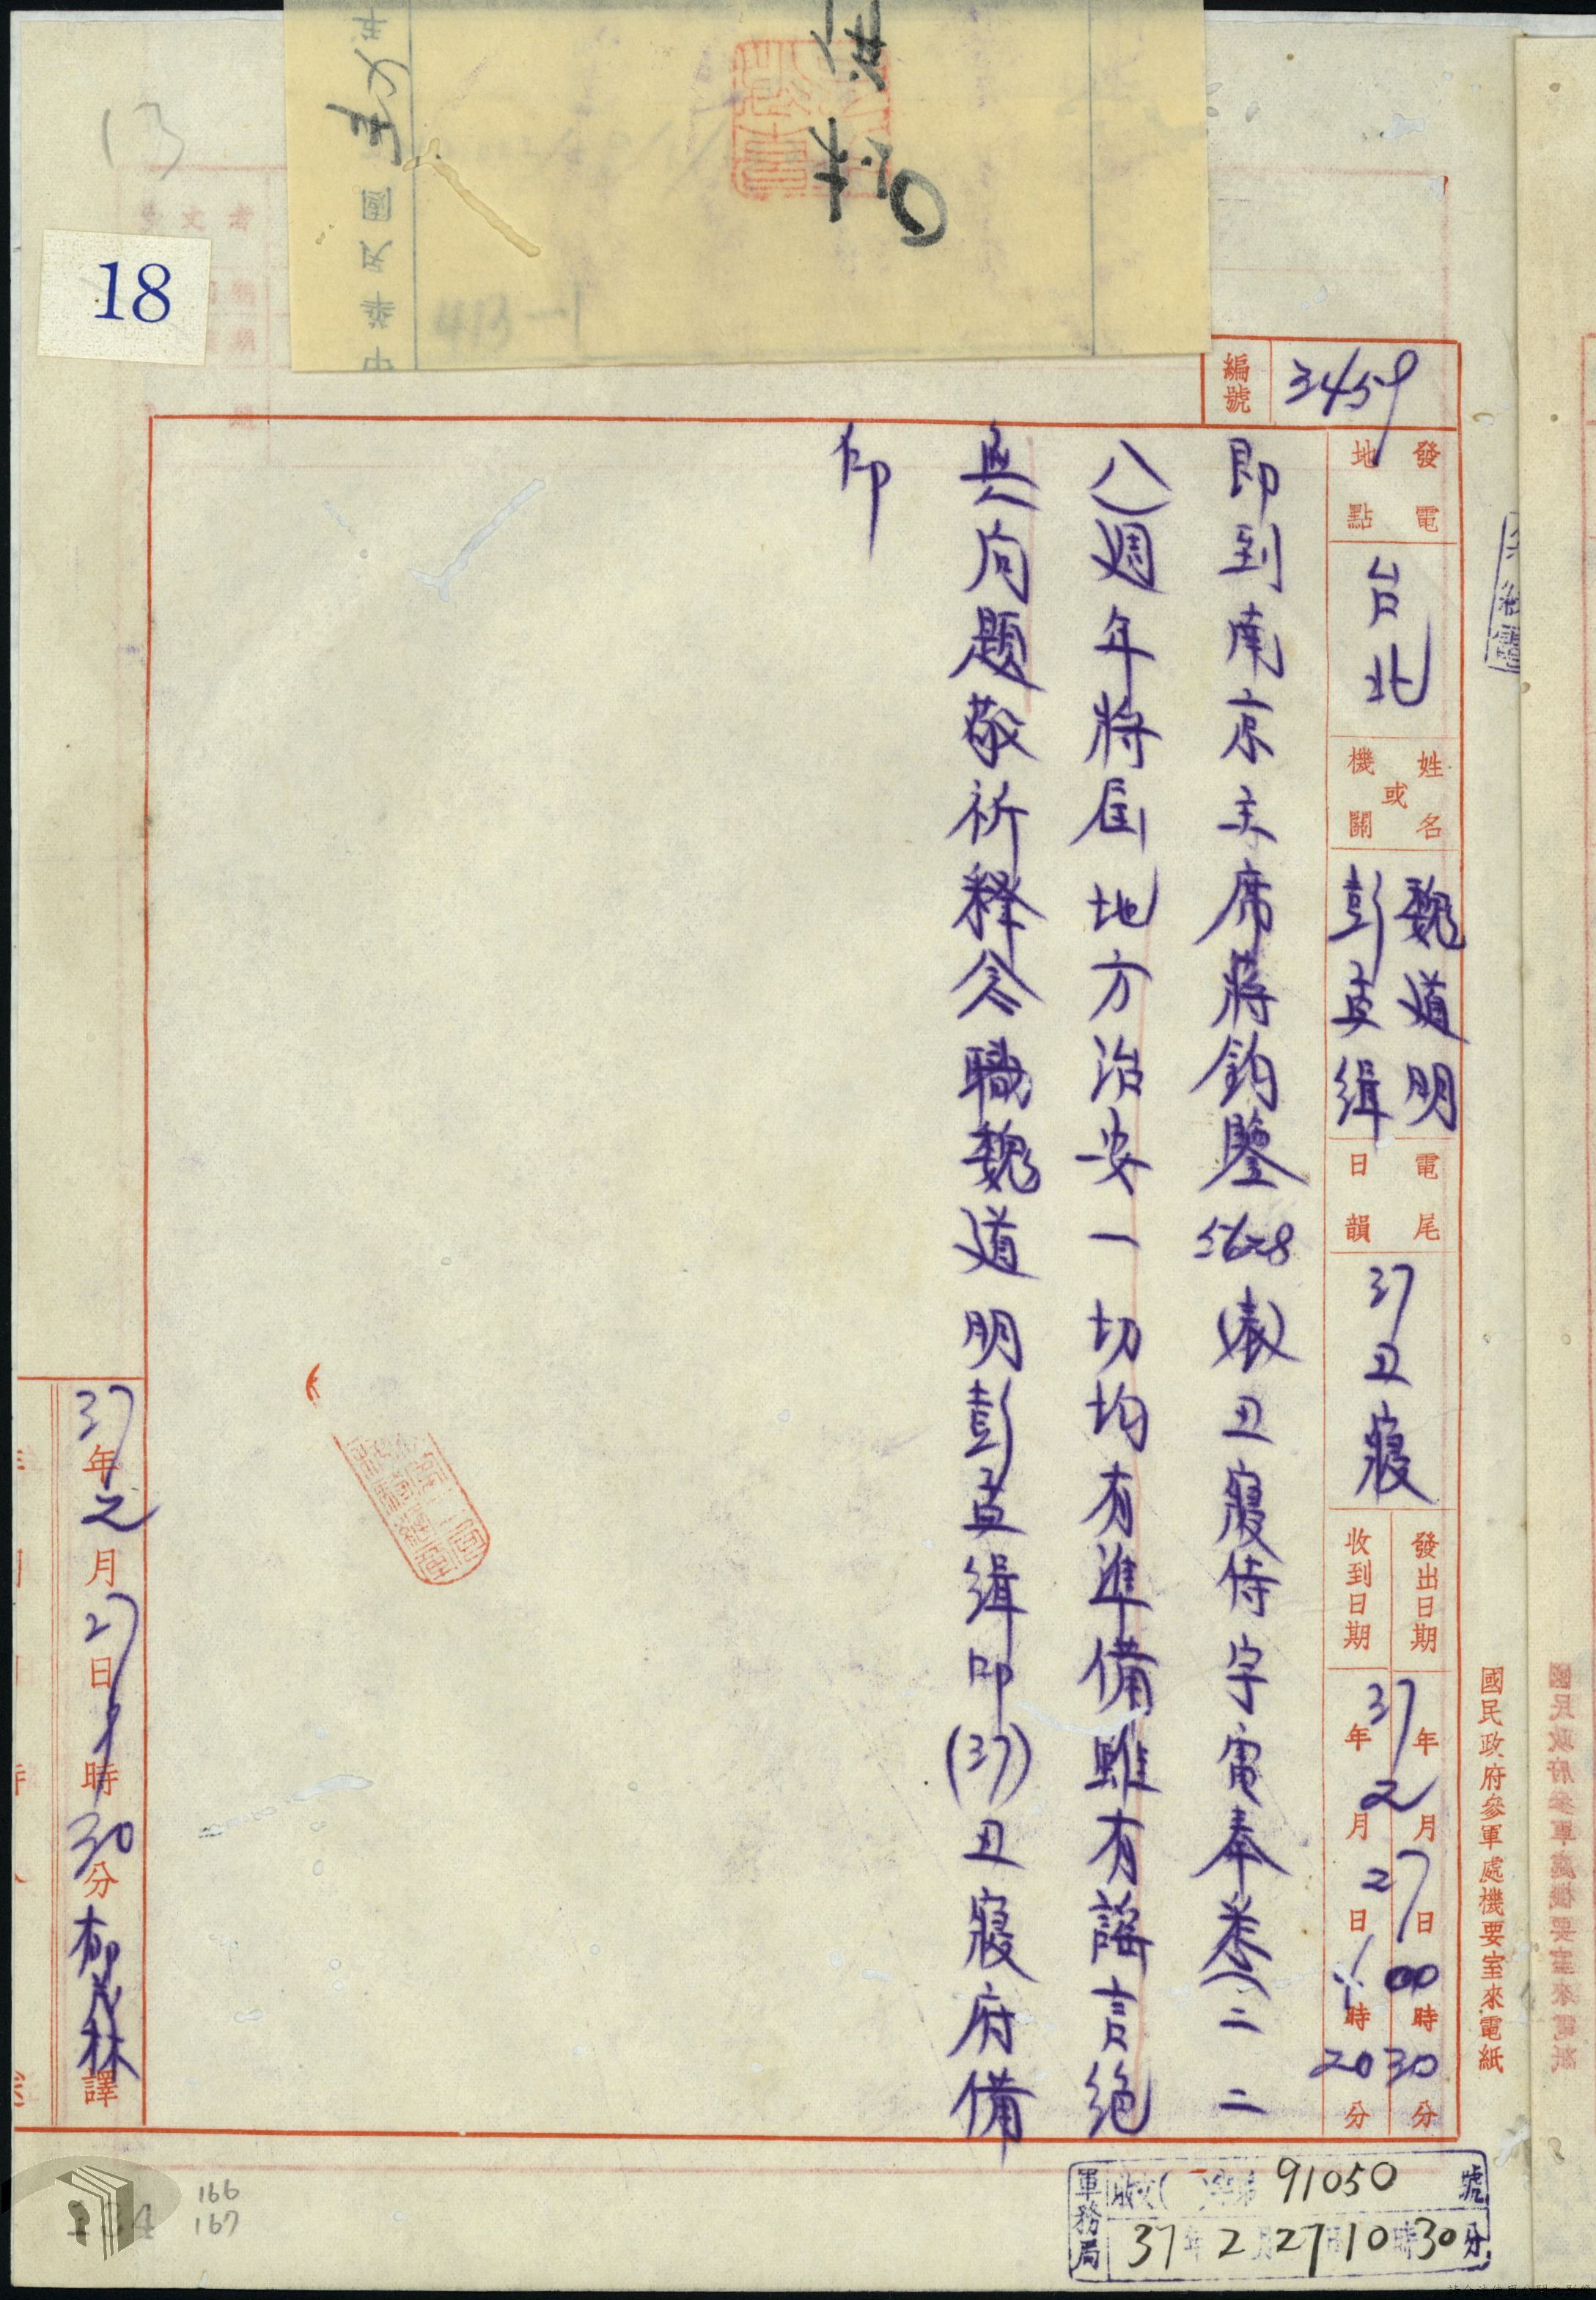 13
18
中華民國
413-1
編號 3459
發電地點 台北
姓名或機關 魏道明 彭孟緝
電尾日韻 37丑寢
發出日期 37年2月27日00時30分
收到日期 年月日時20分
國民政府參軍處機要室來電紙
即到南京主席蔣鈞鑒5628(表)丑寢侍字電奉悉(二二
八)週年將屆地方治安一切均有準備雖有謠言絕
無问題敬祈釋念職魏道明彭孟緝叩(37)丑寢府備
印
37年2月27日9時30分 林譯
軍務局 收文( )字第91050號
37年2月27日10時30分
166
167